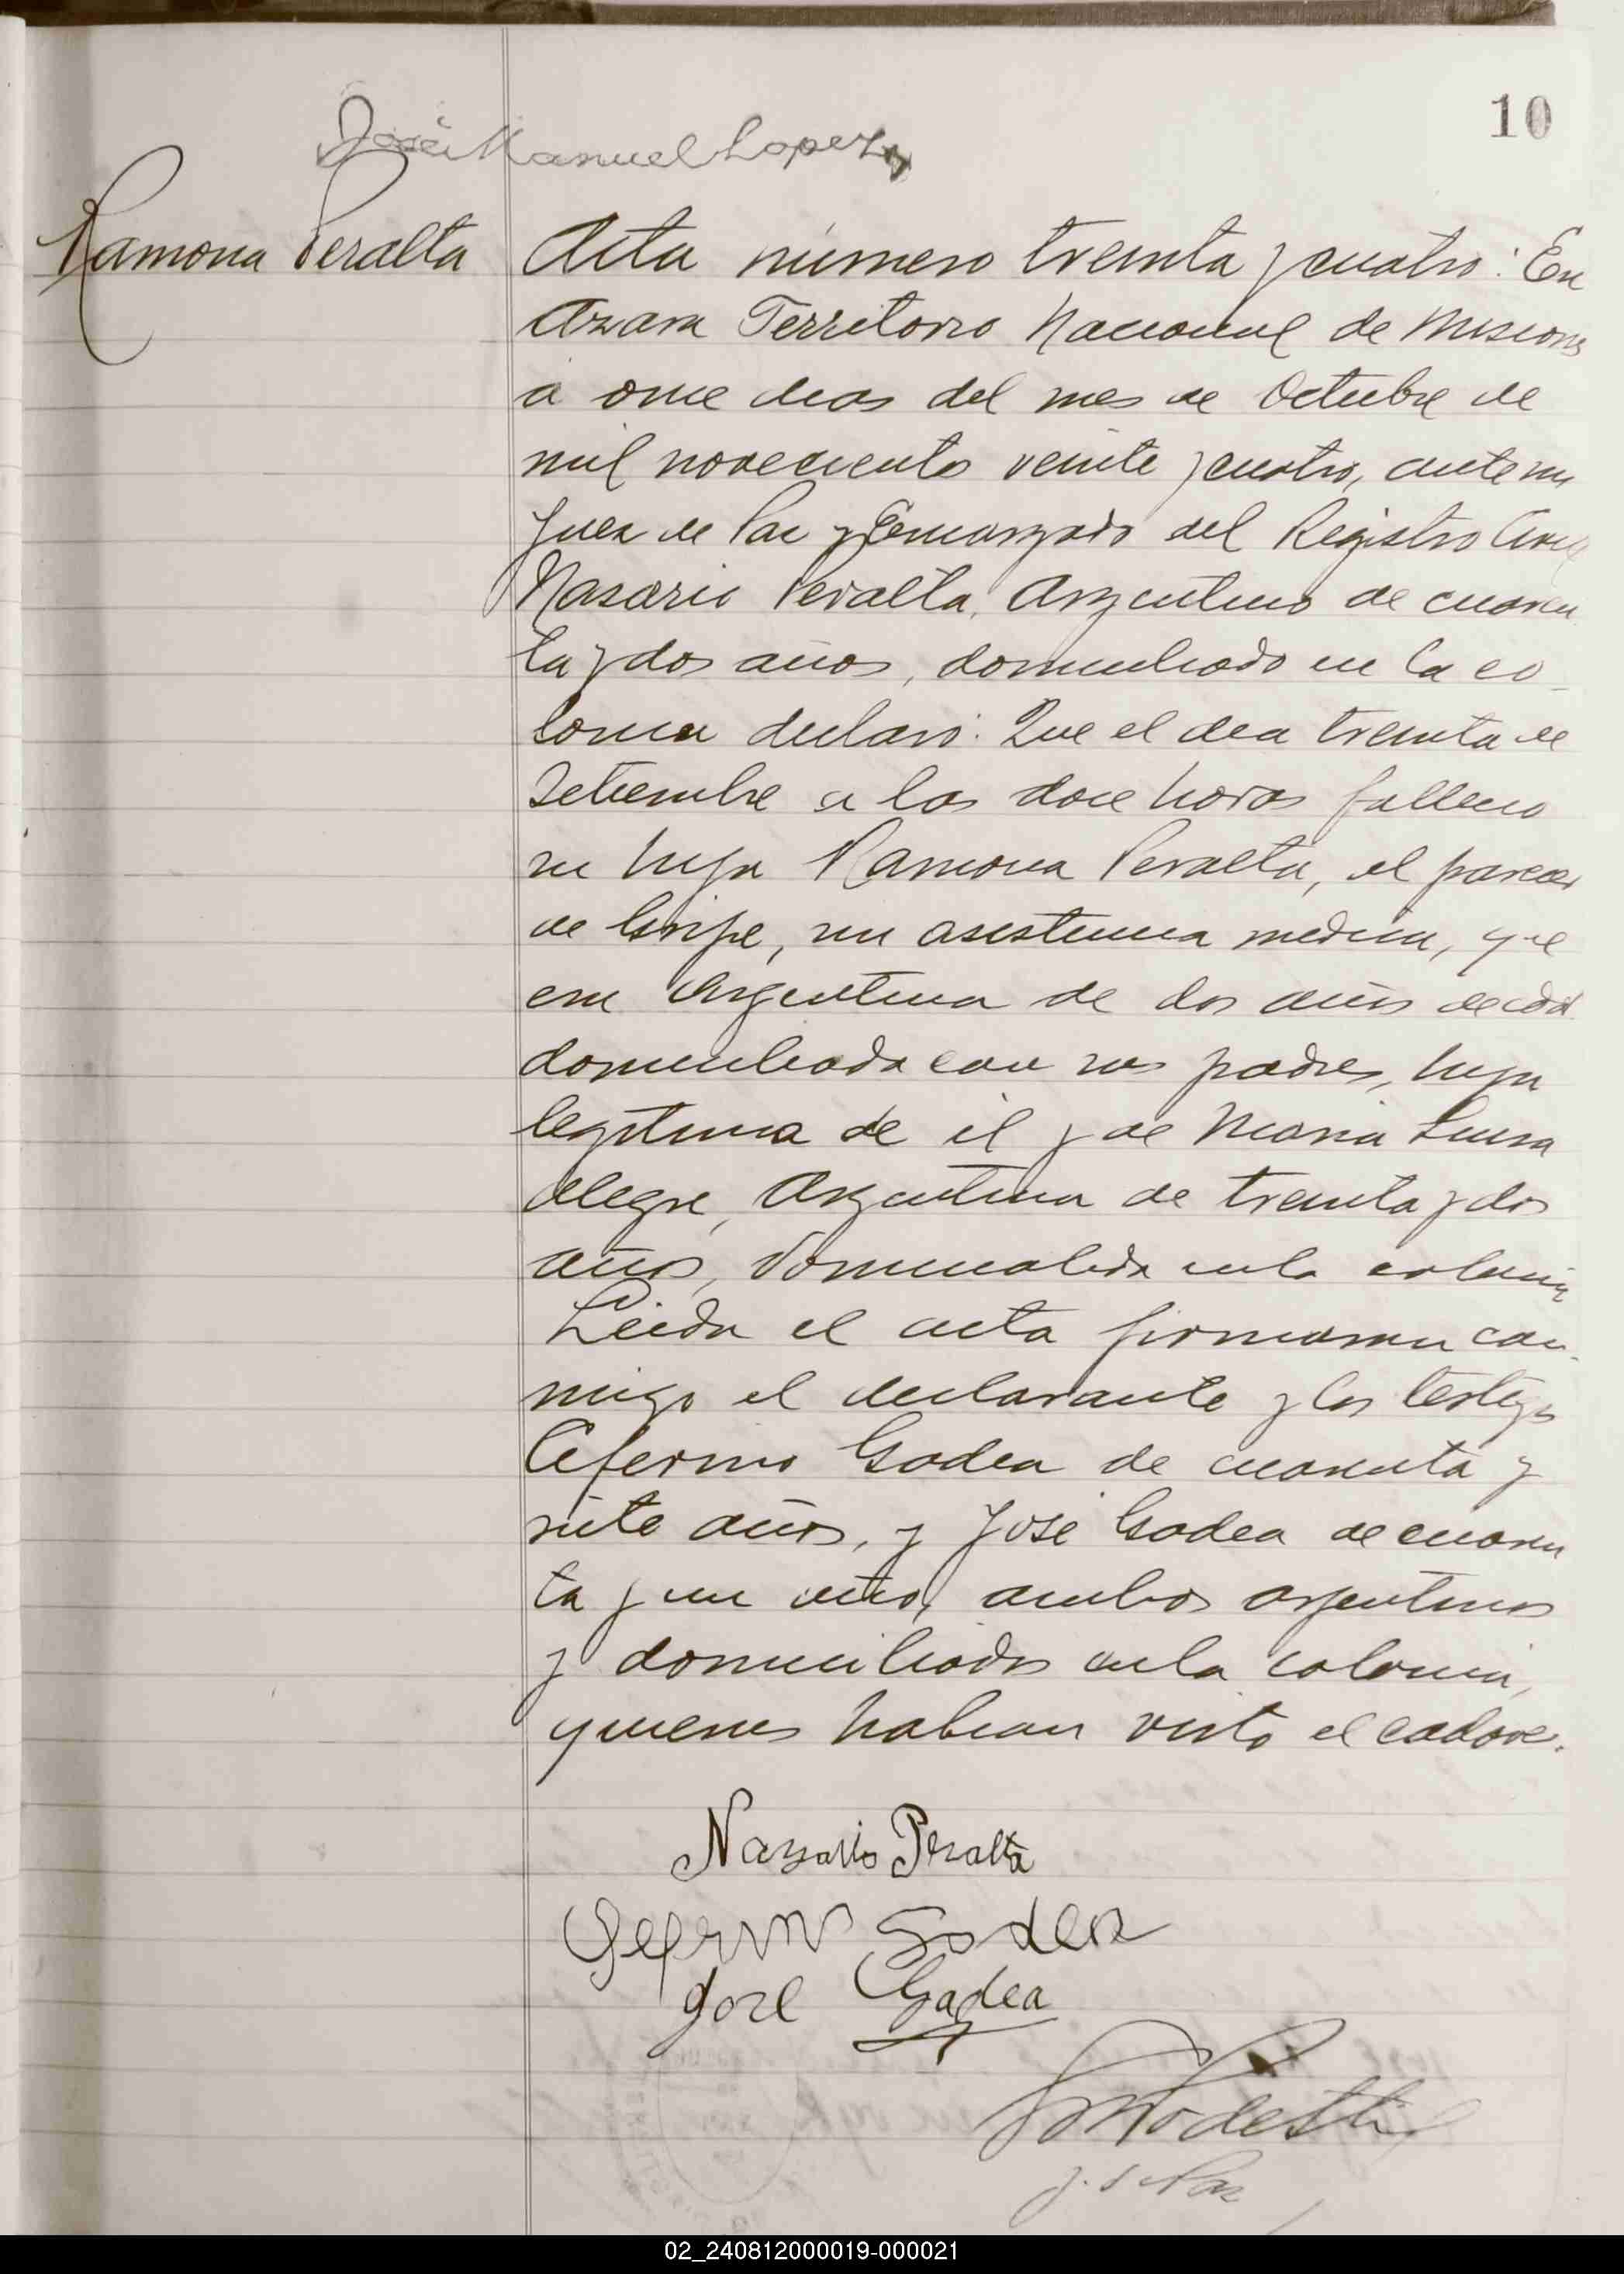 10
José Manuel Lopez
Ramona Peralta
Acta número treinta y cuatro: En
Azara Territorio Nacional de Misiones
á once dias del mes de Octubre de
mil novecientos veinte y cuatro, ante mi
Juez de Paz y Encargado del Registro Civil
Nasario Peralta, Argentino de cuaren
ta y dos años, domiciliado en la co-
lonia declaró: Que el dia treinta de
Setiembre a las doce horas falleció
su hija Ramona Peralta, al parecer
de Gripe, sin asistencia medica, que
era Argentina de dos años de edad
domiciliada con sus padres, hija
legitima de él y de Maria Luisa
Alegre, Argentina de treinta y dos
años, domicialida en la colonia
Leida el acta firmaron con-
migo el declarante y los testigos
Ceferino Godea de cuarenta y
siete años, y José Godea de cuaren
ta y un año, ambos argentinos
y domiciliados en la colonia,
quienes habian visto el cadaver.
Nazario Peralta
Ceferino Godea
José Gadea
Podestá
J. d Paz
02_240812000019-000021